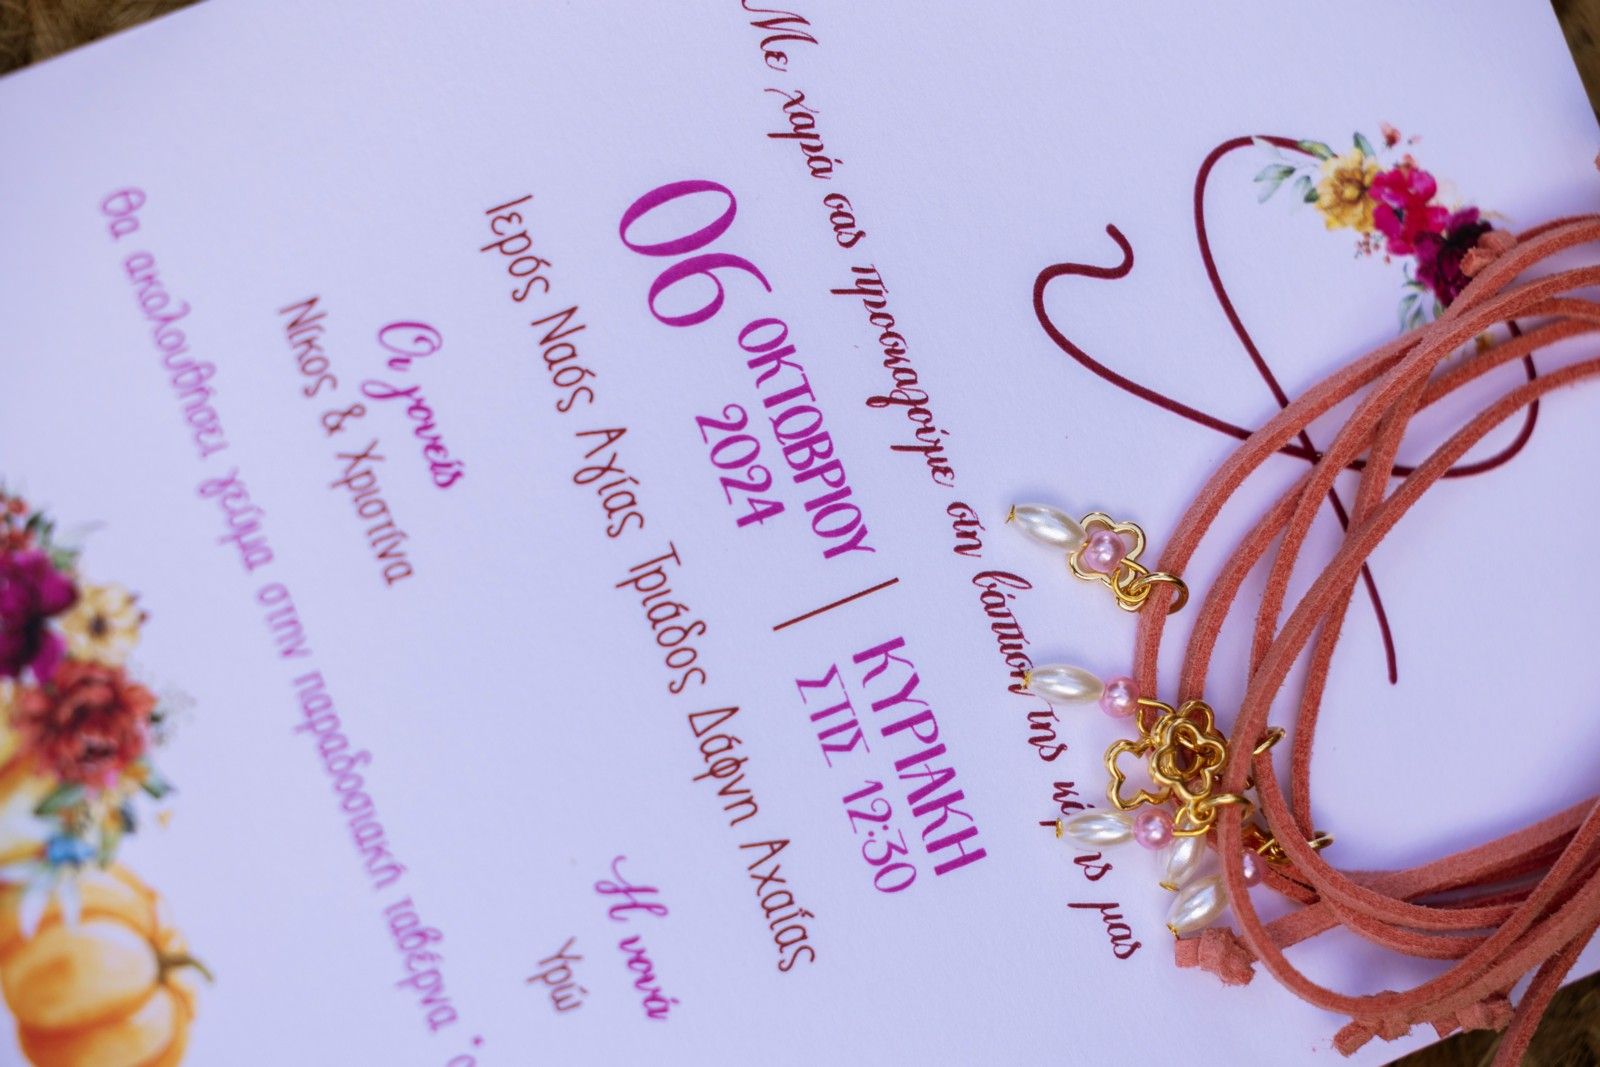 Με χαρά σας προσκαλούμε στη βάπτιση της κόρης μας
06 ΟΚΤΩΒΡΙΟΥ 2024 | ΚΥΡΙΑΚΗ ΣΤΙΣ 12:30
Ιερός Ναός Αγίας Τριάδος Δάφνη Αχαΐας
Οι γονείς
Νίκος & Χριστίνα
Η νονά
Υρώ
Θα ακολουθήσει γεύμα στην παραδοσιακή ταβέρνα